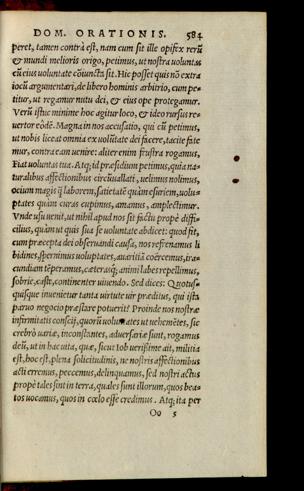 DOM. ORATIONIS. 584
peret, tamen contrà est, nam cum sit ille opifex rerũ
& mundi melioris origo, petimus, ut nostra voluntas
cũ eius voluntate cõiuncta sit. Hic posset quis nõ extra
locũ argumentari, de libero hominis arbitrio, cum pe-
titur, ut regamur nutu dei, & eius ope protegamur.
Verũ istuc minime hoc agitur loco, & ideo rursus re-
vertor eòdẽ. Magna in nos accusatio, qui cũ petimus,
ut nobis liceat omnia ex volũtate dei facere, tacite fate
mur, contra eam venire: aliter enim frustra rogamus,
Fiat voluntas tua. Atq; id præsidium petimus, quia na-
turalibus affectionibus circũvallati, velimus nolimus,
ocium magis q̃ laborem, satietatẽ quàm esuriem, volu-
ptates quàm curas cupimus, amamus, amplectimur.
Vnde usu venit, ut nihil apud nos sit factu propè diffi-
cilius, quàm ut quis sua se voluntate abdicet: quod fit,
cum præcepta dei observandi causa, nos refrenamus li
bidines, spernimus voluptates, avaritiã coërcemus, ira-
cundiam tẽperamus, cæterasq; animi labes repellimus,
sobriè, castè, continenter vivendo. Sed dices: Quotus-
quisque invenietur tanta virtute vir præditus, qui ista
parvo negocio præstare potuerit? Proinde nos nostræ
infirmitatis conscij, quorũ voluntates ut vehemẽtes, sic
crebrò variæ, inconstantes, adversariæ sunt, rogamus
deũ, ut in hac vita, quæ, sicut Iob verissime ait, militia
est, hoc est, plena solicitudinis, ne nostris affectionibus
acti erremus, peccemus, delinquamus, sed nostri actus
propè tales sint in terra, quales sunt illorum, quos bea-
tos vocamus, quos in cœlo esse credimus. Atq; ita per
Oo 5